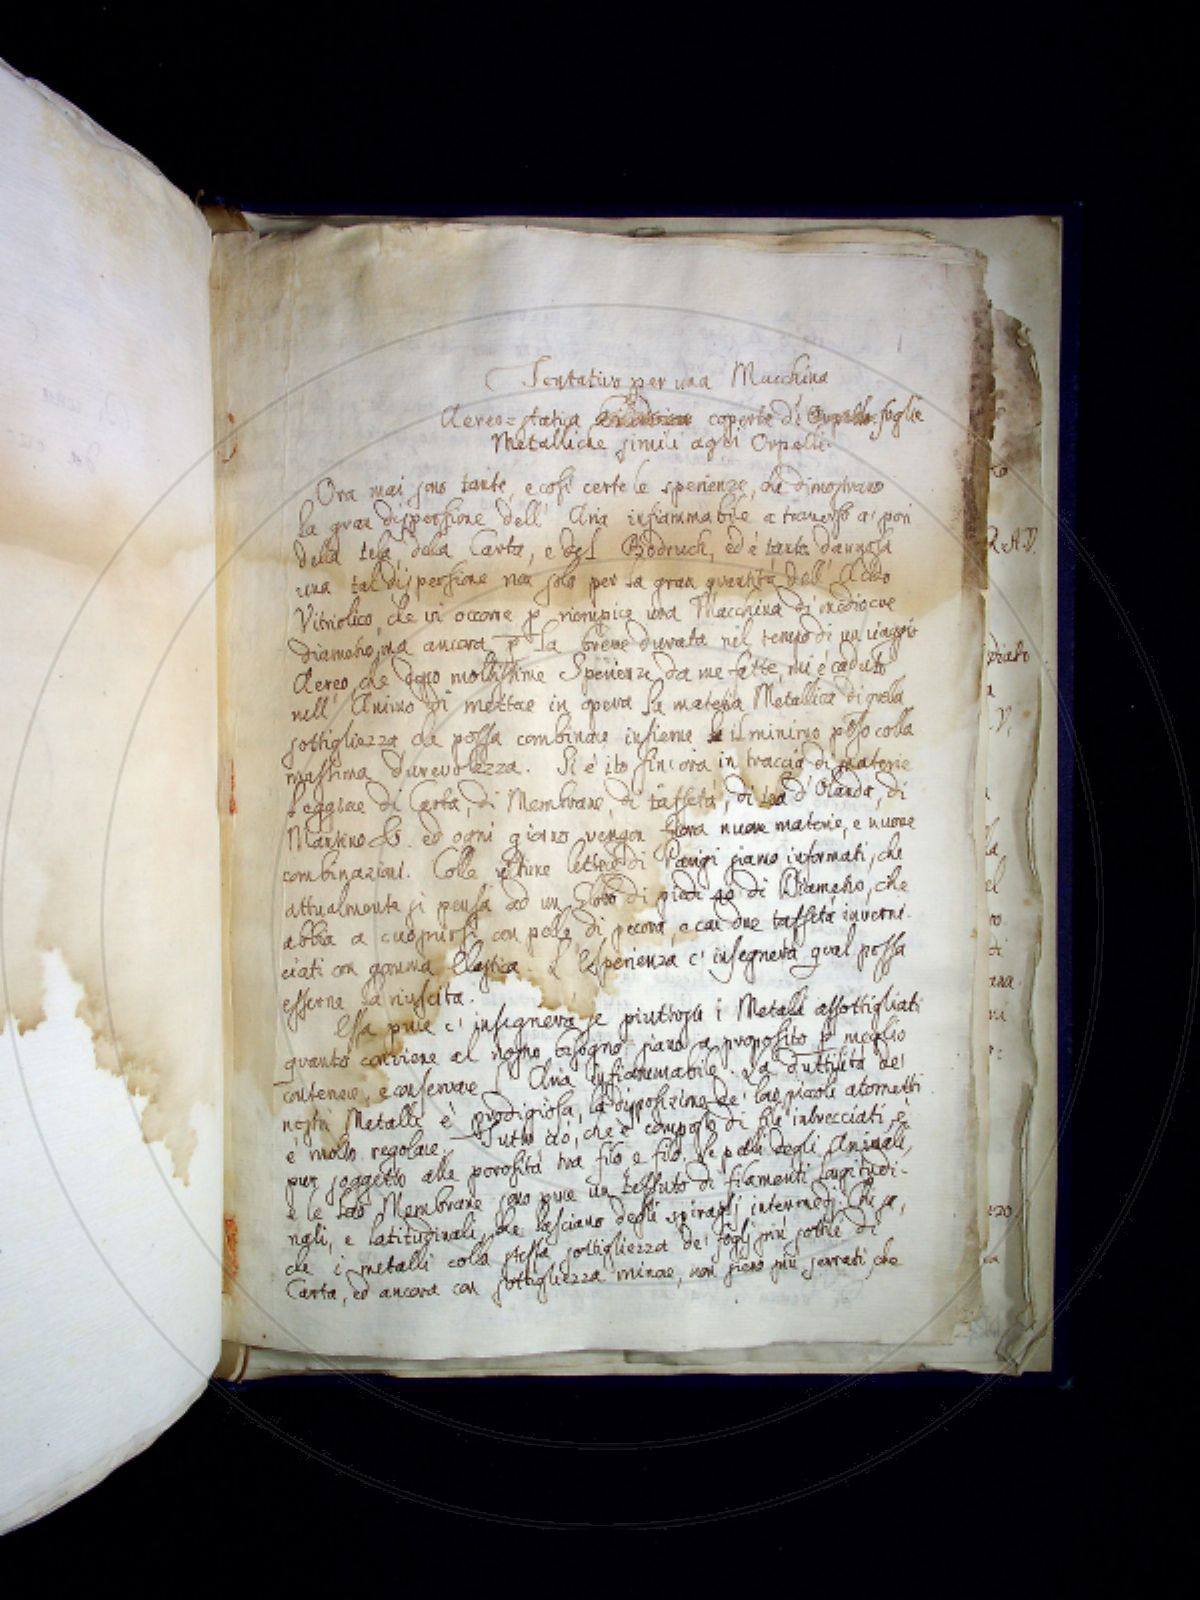 1
Tentativo per una Macchina
Aereo=statica coperta di foglie
Metalliche simili agli Orpelli.
Ora mai sono tante, e così certe le sperienze, che dimostrano
la gran dispersione dell' Aria infiammabile a traverso a' pori
della tela, della Carta, e del Bodruch, ed è tanto dannosa
una tal dispersione non solo per la gran quantità dell' Acido
Vitriolico, che vi occorre p riempire una Macchina di mediocre
diametro, ma ancora p la breve durata nel tempo di un viaggio
Aereo, che dopo moltissime Sperienze da me fatte, mi è caduto
nell' Animo di mettere in opera la materia Metallica di quella
sottigliezza, che possa combinare insieme il minimo peso colla
massima durevolezza. Si è ito fin' ora in traccia di materie
leggiere di Carta, di Membrane, di taffetà, di tela d' Olanda, di
ed ogni giorno vengon fuora nuove materie, e nuove
combinazioni. Colle ultime lettere di Parigi siamo informati, che
attualmente si pensa ad un Globo di piedi di Diametro, che
abbia a cuoprirsi con pelle di pecora, e con due taffetà inverni-
ciati con gomma Elastica. L' Esperienza c' insegnerà qual possa
esserne la riuscita.
Essa pure c' insegnerà se piuttosto i Metalli assottigliati
quanto conviene al nostro bisogno siano a proposito p meglio
contenere, e conservare l' Aria infiammabile. La duttilità de'
nostri Metalli è prodigiosa, la disposizione de' loro piccoli atometti
è molto regolare. Tutto ciò, che è composto di fila intrecciati, è
pur soggetto alle porosità tra filo e filo. Le pelli degli Animali,
e le loro Membrane sono pure un tessuto di filamenti longitudi-
nali, e latitudinali, che lasciano degli spiragli intermedj. Chi sa,
che i metalli colla stessa sottigliezza de' fogli più sottili di
Carta, ed ancora con sottigliezza minore, non sieno più serrati, che